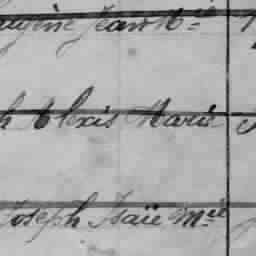 Eugène Jean M.ie
h Alexis Marie
Joseph Isaïe M.ie